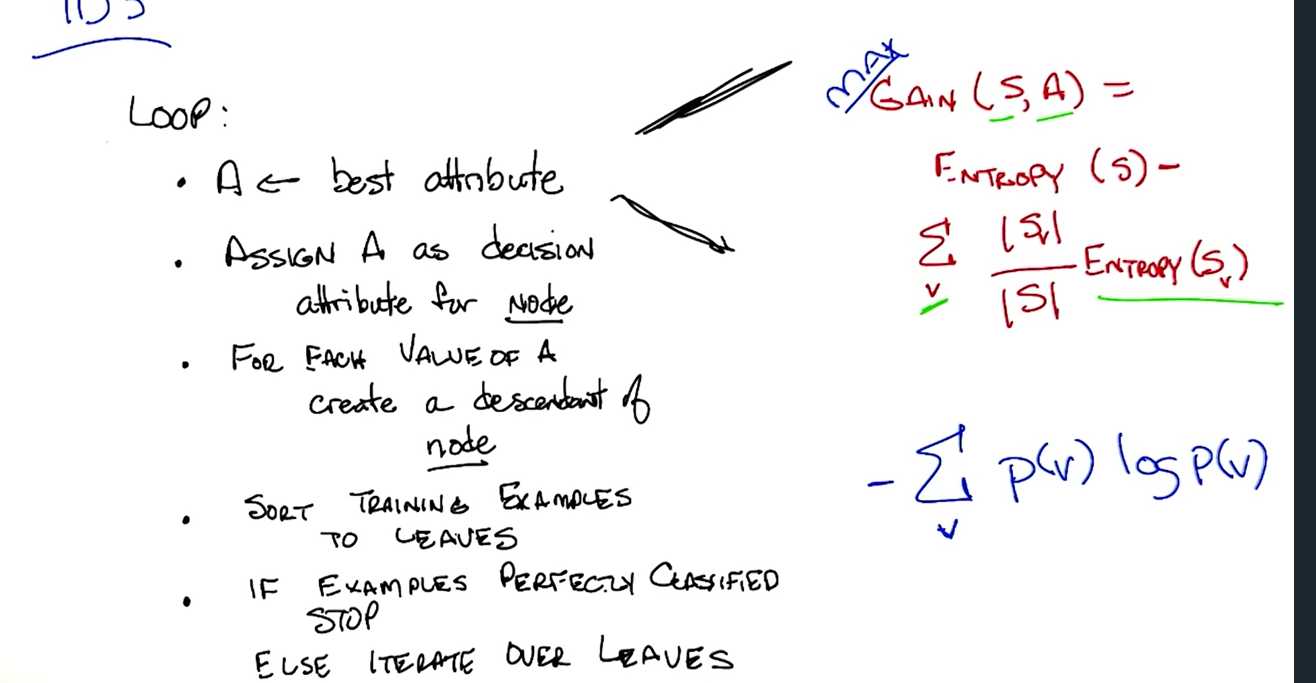 ID3
LOOP:
• A ← best attribute
• ASSIGN A as decision
attribute for NODE
• FOR EACH VALUE OF A
create a descendant of
node
• SORT TRAINING EXAMPLES
TO LEAVES
• IF EXAMPLES PERFECTLY CLASSIFIED
STOP
ELSE ITERATE OVER LEAVES
MAX
GAIN (S, A) =
ENTROPY (S) -
∑_v |S_v| / |S| ENTROPY (S_v)
- ∑_v P(v) log P(v)